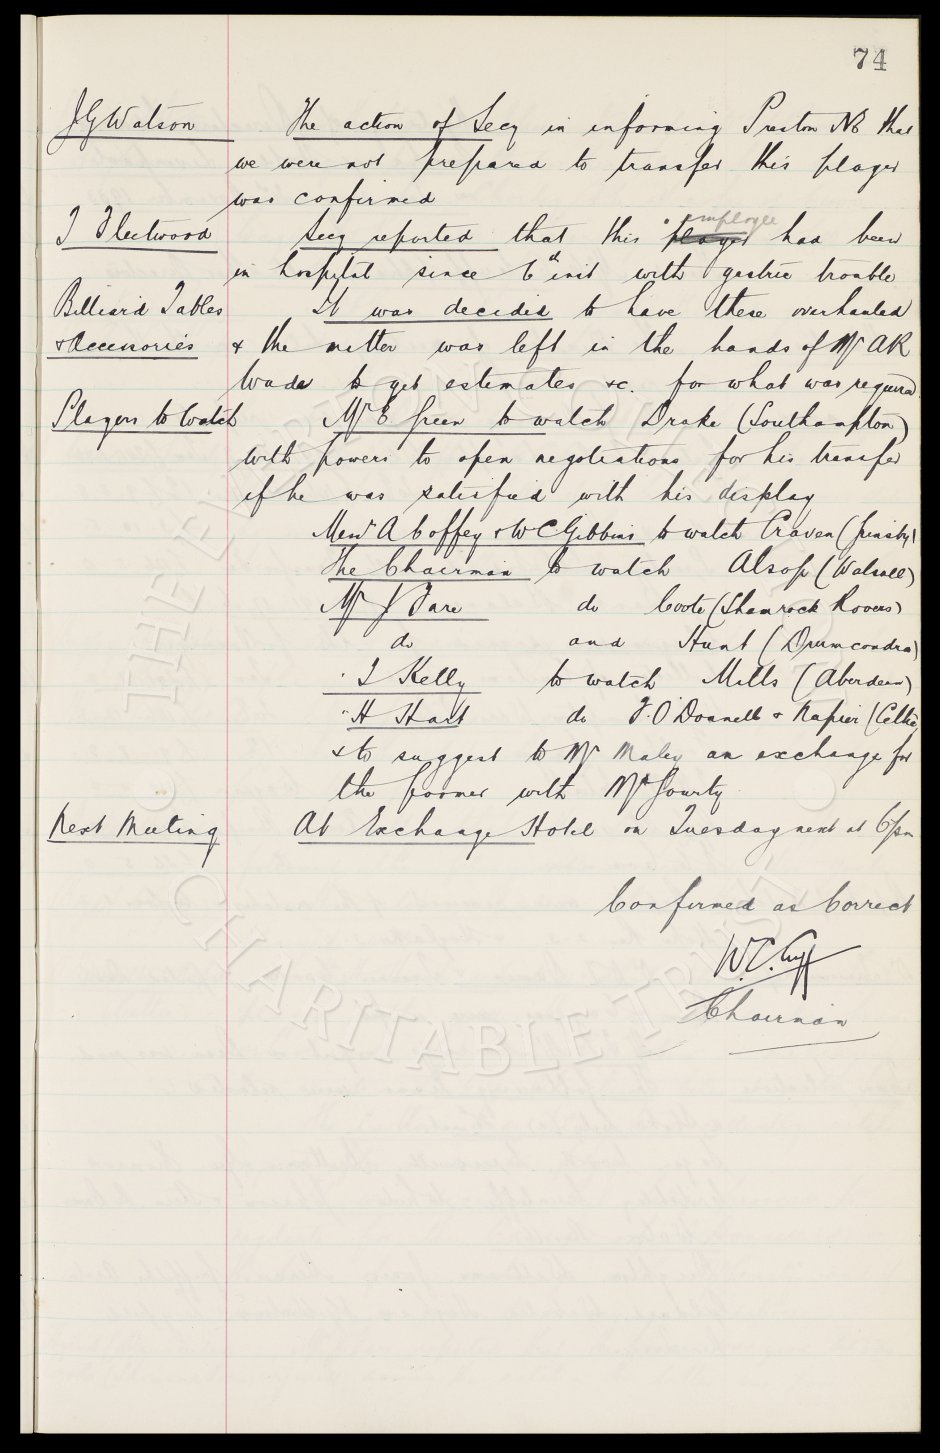 74
J G Watson The action of Secy in informing Preston NE that
we were not prepared to transfer this player
was confirmed
employee
T Fleetwood Secy reported that this player had been
in hospital since 6th inst with gastric trouble
Billiard Tables It was decided to have these overhauled
& Accessories & the matter was left in the hands of Mr A R
Wade to get estimates &c. for what was required
Players to Watch Mr E Green to watch Drake (Southampton)
with powers to open negotiations for his transfer
if he was satisfied with his display
Messrs A Coffey & W C Gibbins to watch Craven (Grimsby)
The Chairman to watch Alsop (Walsall)
Mr J Fare do Coote (Shamrock Rovers)
do and Hunt (Drumcondra)
T Kelly to watch Mills (Aberdeen)
H Hart do F. O'Donnell & Napier (Celtic)
& to suggest to Mr Maley an exchange for
the former with McGourty
Next Meeting At Exchange Hotel on Tuesday next at 6 pm
Confirmed as Correct
W. C. Cuff
Chairman
THE EVERTON COLLECTION
CHARITABLE TRUST